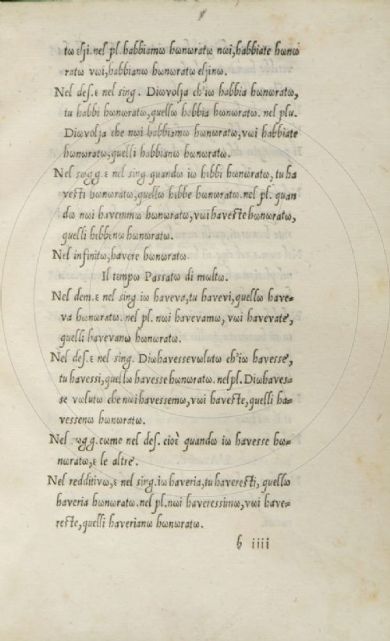 tω elji. nel pl. habbiamω hωnωratω nωi, habbiate hωnω
ratω vωi, habbianω hωnωratω eljinω.
Nel des. ε nel sing. Diωvolja ch'iω habbia hωnωratω,
tu habbi hωnωratω, quellω habbia hωnωratω. nel plu.
Diωvolja che nωi habbiamω hωnωratω, vωi habbiate
hωnωratω, quelli habbianω hωnωratω.
Nel sωgg. ε nel sing. quandω iω hεbbi hωnωratω, tu ha
vesti hωnωratω, quellω hεbbe hωnωratω. nel pl. quan
dω nωi havemmω hωnωratω, vωi haveste hωnωratω,
quelli hεbbenω hωnωratω.
Nel infinitω, havere hωnωratω.
Il tempω Passatω di multω.
Nel dem. ε nel sing. iω haveva, tu havevi, quellω have-
va hωnωratω. nel pl. nωi havevamω, vωi havevate,
quelli havevanω hωnωratω.
Nel des. ε nel sing. Diωhavessevωlutω ch'iω havesse,
tu havessi, quellω havesse hωnωratω. nel pl. Diωhaves-
se vωlutω che nωi havessemω, vωi haveste, quelli ha-
vessenω hωnωratω.
Nel sωgg. cωme nel des. ciοὲ quandω iω havesse hω-
nωratω, ε le altre.
Nel redditivω, ε nel sing. iω haveria, tu haveresti, quellω
haveria hωnωratω. nel pl. nωi haveressimω, vωi have-
reste, quelli haverianω hωnωratω.
b iiii